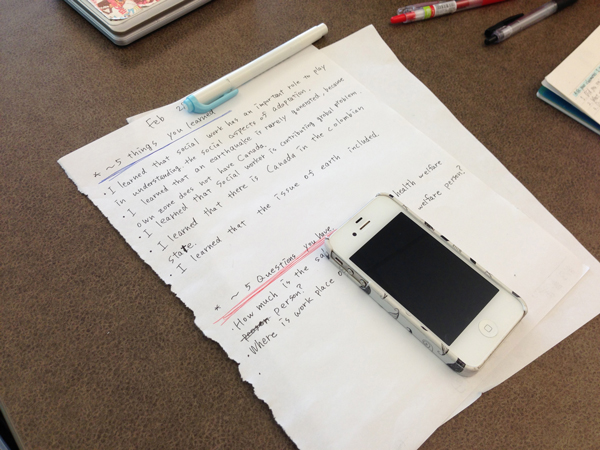 Feb 2
* ~ 5 things you learned
· I learned that social work has an important role to play
in understanding the social aspects of adaptation.
· I learned that an earthquake is rarely generated, because
own zone does not have Canada.
· I learned that Social worker is contributing global problem
· I learned that there is Canada in the Colombian
state.
· I learned that the issue of earth included
health welfare
* ~ 5 Questions you have
welfare person?
How much is the
person?
· Where is work place
·